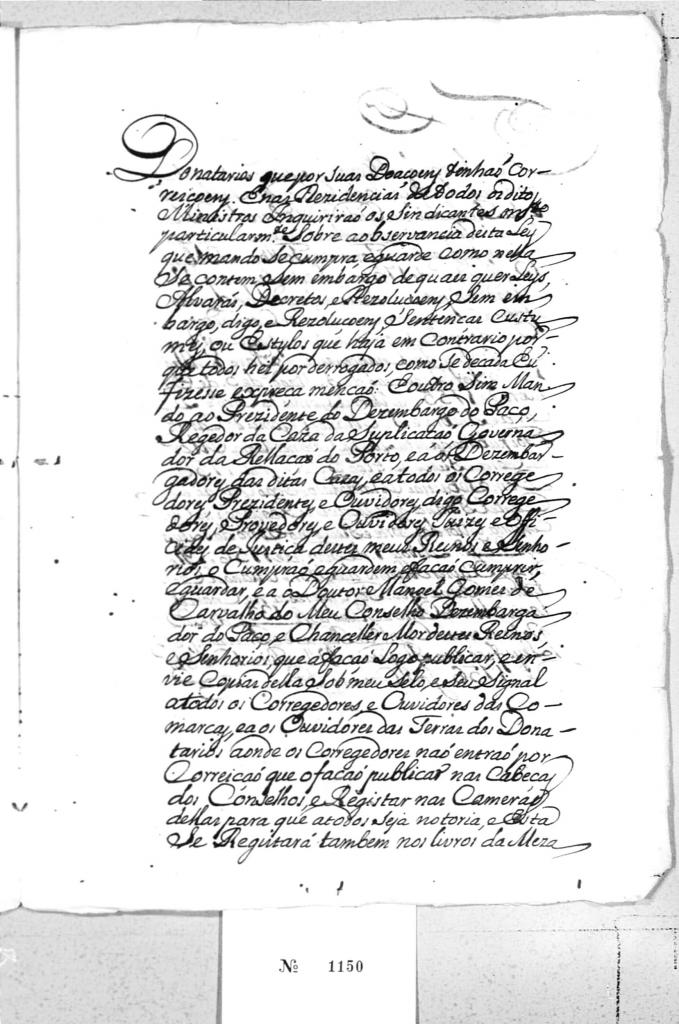 Donatarios que por suas Doacoens tinhaõ Cor-
reicoens. E nas Rezidencias de todos os ditos
Ministros Inquiriraõ os Sindicantes
particularm.te Sobre a observancia desta Ley
que mando Se cumpra, e guarde como nella
Se contem, Sem embargo de quais quer Leys,
Alvaras, Decretos, e Rezolucoens, Sem em-
bargo, digo, e Rezolucoens, Sentencas Custu-
mes, ou Estylos que hajá em Contrario por-
que todos hei por derrogados, como Se de cada hũ
fizesse expreca mencaõ: E outro Sim Man-
do ao Prezidente do Dezembargo do Paço,
Regedor da Caza da Suplicacaõ Governa-
dor da Rellacaõ do Porto, e a os Dezembar-
gadores das ditas Cazas, e a todos os Correge
dores Prezidentes, e Ouvidores, digo Correge
dores, Provedores, e Ouvidores Juizes, e Offi-
ciaes de Justiça destes meus Reinos, e Senho-
rios, o Cumpraõ, e guardem, e facaõ cumprir,
e guardar, e a o Doutor Manoel Gomes de
Carvalho do Meu Conselho Dezembarga-
dor do Paço, e Chanceller Mor destes Reinos,
e Senhorios, que a facaõ Logo publicar, e in-
vie Copias della Sob meu Selo, e Seu Signal
a todos os Corregedores, e Ouvidores das Co-
marcas, e a os Ouvidores das Terras dos Dona-
tarios aonde os Corregedores naõ entraõ por
Correicaõ que o facaõ publicar nas Cabecas
dos Conselhos, e Registar nas Cameras
dellas para que a todos Seja notoria, e Esta
Se Registará tambem nos livros da Meza
Nº 1150